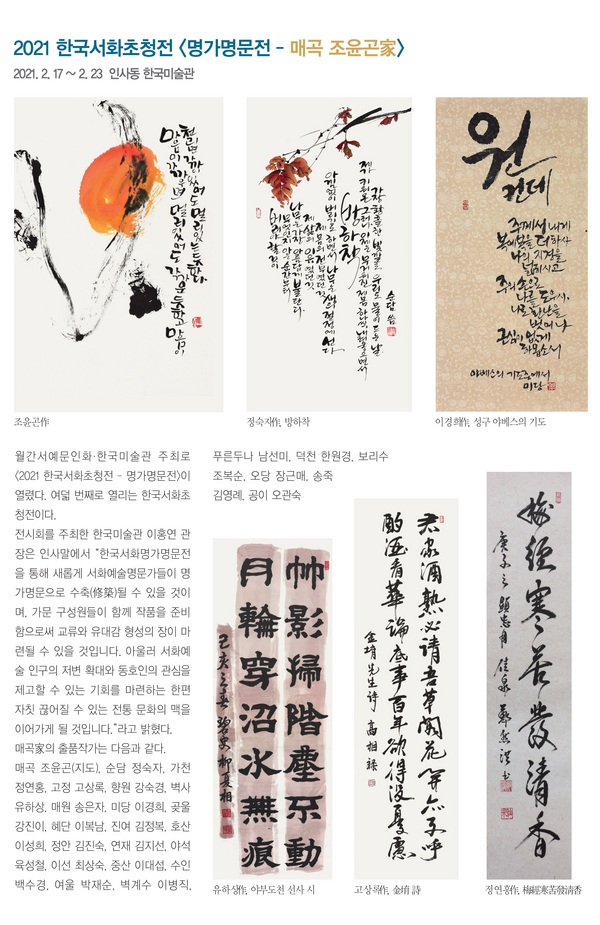 2021 한국서화초청전 〈명가명문전 - 매곡 조윤곤家〉
2021. 2. 17 ~ 2. 23 인사동 한국미술관
버려야 할 것이
무엇인지 아는 순간부터
나무는 가장 아름답게 불탄다
제 삶의 이유였던 것
제 몸의 전부였던 것
아낌없이 버리기로 하면서 나무는 생의 절정에 선다
방하착
제가 키워온 그러나 이제는 무거워진 제 몸 하나씩 내려놓으면서
가장 황홀한 빛깔로 우리도 물이 드는 날
순담 씀
원
컨대
주께서 내게
복에 복을 더하사
나의 지경을
넓히시고
주의 손으로
나를 도우사,
나로 환난을
벗어나
근심이 없게
하옵소서
야베스의 기도중에서
미당
조윤곤作
정숙자作, 방하착
이경희作, 성구 야베스의 기도
월간서예문인화·한국미술관 주최로
〈2021 한국서화초청전 - 명가명문전〉이
열렸다. 여덟 번째로 열리는 한국서화초
청전이다.
전시회를 주최한 한국미술관 이홍연 관
장은 인사말에서 "한국서화명가명문전
을 통해 새롭게 서화예술명문가들이 명
가명문으로 수축(修築)될 수 있을 것이
며, 가문 구성원들이 함께 작품을 준비
함으로써 교류와 유대감 형성의 장이 마
련될 수 있을 것입니다. 아울러 서화예
술 인구의 저변 확대와 동호인의 관심을
제고할 수 있는 기회를 마련하는 한편
자칫 끊어질 수 있는 전통 문화의 맥을
이어가게 될 것입니다."라고 밝혔다.
매곡家의 출품작가는 다음과 같다.
매곡 조윤곤(지도), 순담 정숙자, 가천
정연홍, 고정 고상록, 향원 강숙경, 벽사
유하상, 매원 송은자, 미당 이경희, 곶울
강진이, 혜단 이복남, 진여 김정복, 호산
이성희, 정안 김진숙, 연재 김지선, 야석
육성철, 이선 최상숙, 중산 이대섭, 수인
백수경, 여울 박재순, 벽계수 이병직,
푸른두나 남선미, 덕천 한원경, 보리수
조복순, 오당 장근매, 송죽
김영례, 공이 오관숙
竹影掃階塵不動
月輪穿沼水無痕
己亥之春 碧史 柳夏相
君家酒熟必請吾草閣花開亦子呼
酌酒看華論底事百年欲得沒憂慮
金堉先生詩 高相祿
梅經寒苦發淸香
유하상作, 야부도천 선사 시
고상록作, 金堉 詩
정연홍作, 梅經寒苦發淸香